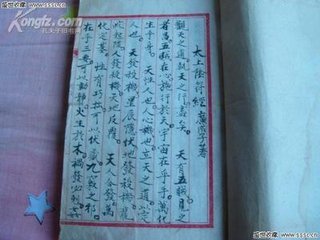 盛世收藏 www.sssc.cn
Kongfz.com
太上陰符經 廣成子著
觀天之道執天之行盡矣。天有五賊見之
者昌五賊在心施行於天宇宙在乎手萬化
生乎身。天性人也人心機也立天之道以定
人也天發殺機星辰隱伏地發殺機龍蛇
起陸人發殺機天地反覆。天人合發萬
化定基。性有巧拙可以伏藏九竅之邪
在乎三要可以動靜火生於木禍發必剋姦
盛世收藏 www.sssc.cn